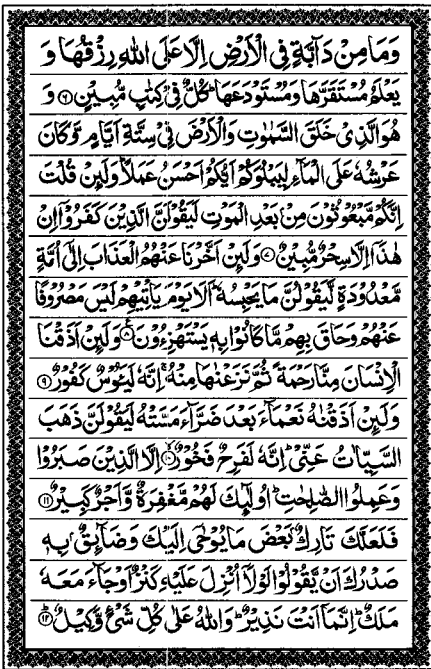 وَمَا مِنْ دَآبَّةٍ فِي الْاَرْضِ اِلَّا عَلَى اللّٰهِ رِزْقُهَا وَ
يَعْلَمُ مُسْتَقَرَّهَا وَمُسْتَوْدَعَهَا ؕ كُلٌّ فِيْ كِتٰبٍ مُّبِيْنٍ ۝۶ وَ
هُوَ الَّذِيْ خَلَقَ السَّمٰوٰتِ وَالْاَرْضَ فِيْ سِتَّةِ اَيَّامٍ وَّكَانَ
عَرْشُهٗ عَلَى الْمَآءِ لِيَبْلُوَكُمْ اَيُّكُمْ اَحْسَنُ عَمَلًا ؕ وَلَئِنْ قُلْتَ
اِنَّكُمْ مَّبْعُوْثُوْنَ مِنْ بَعْدِ الْمَوْتِ لَيَقُوْلَنَّ الَّذِيْنَ كَفَرُوْۤا اِنْ
هٰذَاۤ اِلَّا سِحْرٌ مُّبِيْنٌ ۝۷ وَلَئِنْ اَخَّرْنَا عَنْهُمُ الْعَذَابَ اِلٰۤى اُمَّةٍ
مَّعْدُوْدَةٍ لَّيَقُوْلُنَّ مَا يَحْبِسُهٗ ؕ اَلَا يَوْمَ يَاْتِيْهِمْ لَيْسَ مَصْرُوْفًا
عَنْهُمْ وَحَاقَ بِهِمْ مَّا كَانُوْا بِهٖ يَسْتَهْزِءُوْنَ ۝۸ وَلَئِنْ اَذَقْنَا
الْاِنْسَانَ مِنَّا رَحْمَةً ثُمَّ نَزَعْنٰهَا مِنْهُ ۚ اِنَّهٗ لَيَـُٔوْسٌ كَفُوْرٌ ۝۹
وَلَئِنْ اَذَقْنٰهُ نَعْمَآءَ بَعْدَ ضَرَّآءَ مَسَّتْهُ لَيَقُوْلَنَّ ذَهَبَ
السَّيِّاٰتُ عَنِّيْ ؕ اِنَّهٗ لَفَرِحٌ فَخُوْرٌ ۝۱۰ اِلَّا الَّذِيْنَ صَبَرُوْا
وَعَمِلُوا الصّٰلِحٰتِ ؕ اُولٰٓئِكَ لَهُمْ مَّغْفِرَةٌ وَّاَجْرٌ كَبِيْرٌ ۝۱۱
فَلَعَلَّكَ تَارِكٌۢ بَعْضَ مَا يُوْحٰۤى اِلَيْكَ وَضَآئِقٌۢ بِهٖ
صَدْرُكَ اَنْ يَّقُوْلُوْا لَوْلَاۤ اُنْزِلَ عَلَيْهِ كَنْزٌ اَوْ جَآءَ مَعَهٗ
مَلَكٌ ؕ اِنَّمَاۤ اَنْتَ نَذِيْرٌ ؕ وَاللّٰهُ عَلٰى كُلِّ شَيْءٍ وَّكِيْلٌ ۝۱۲